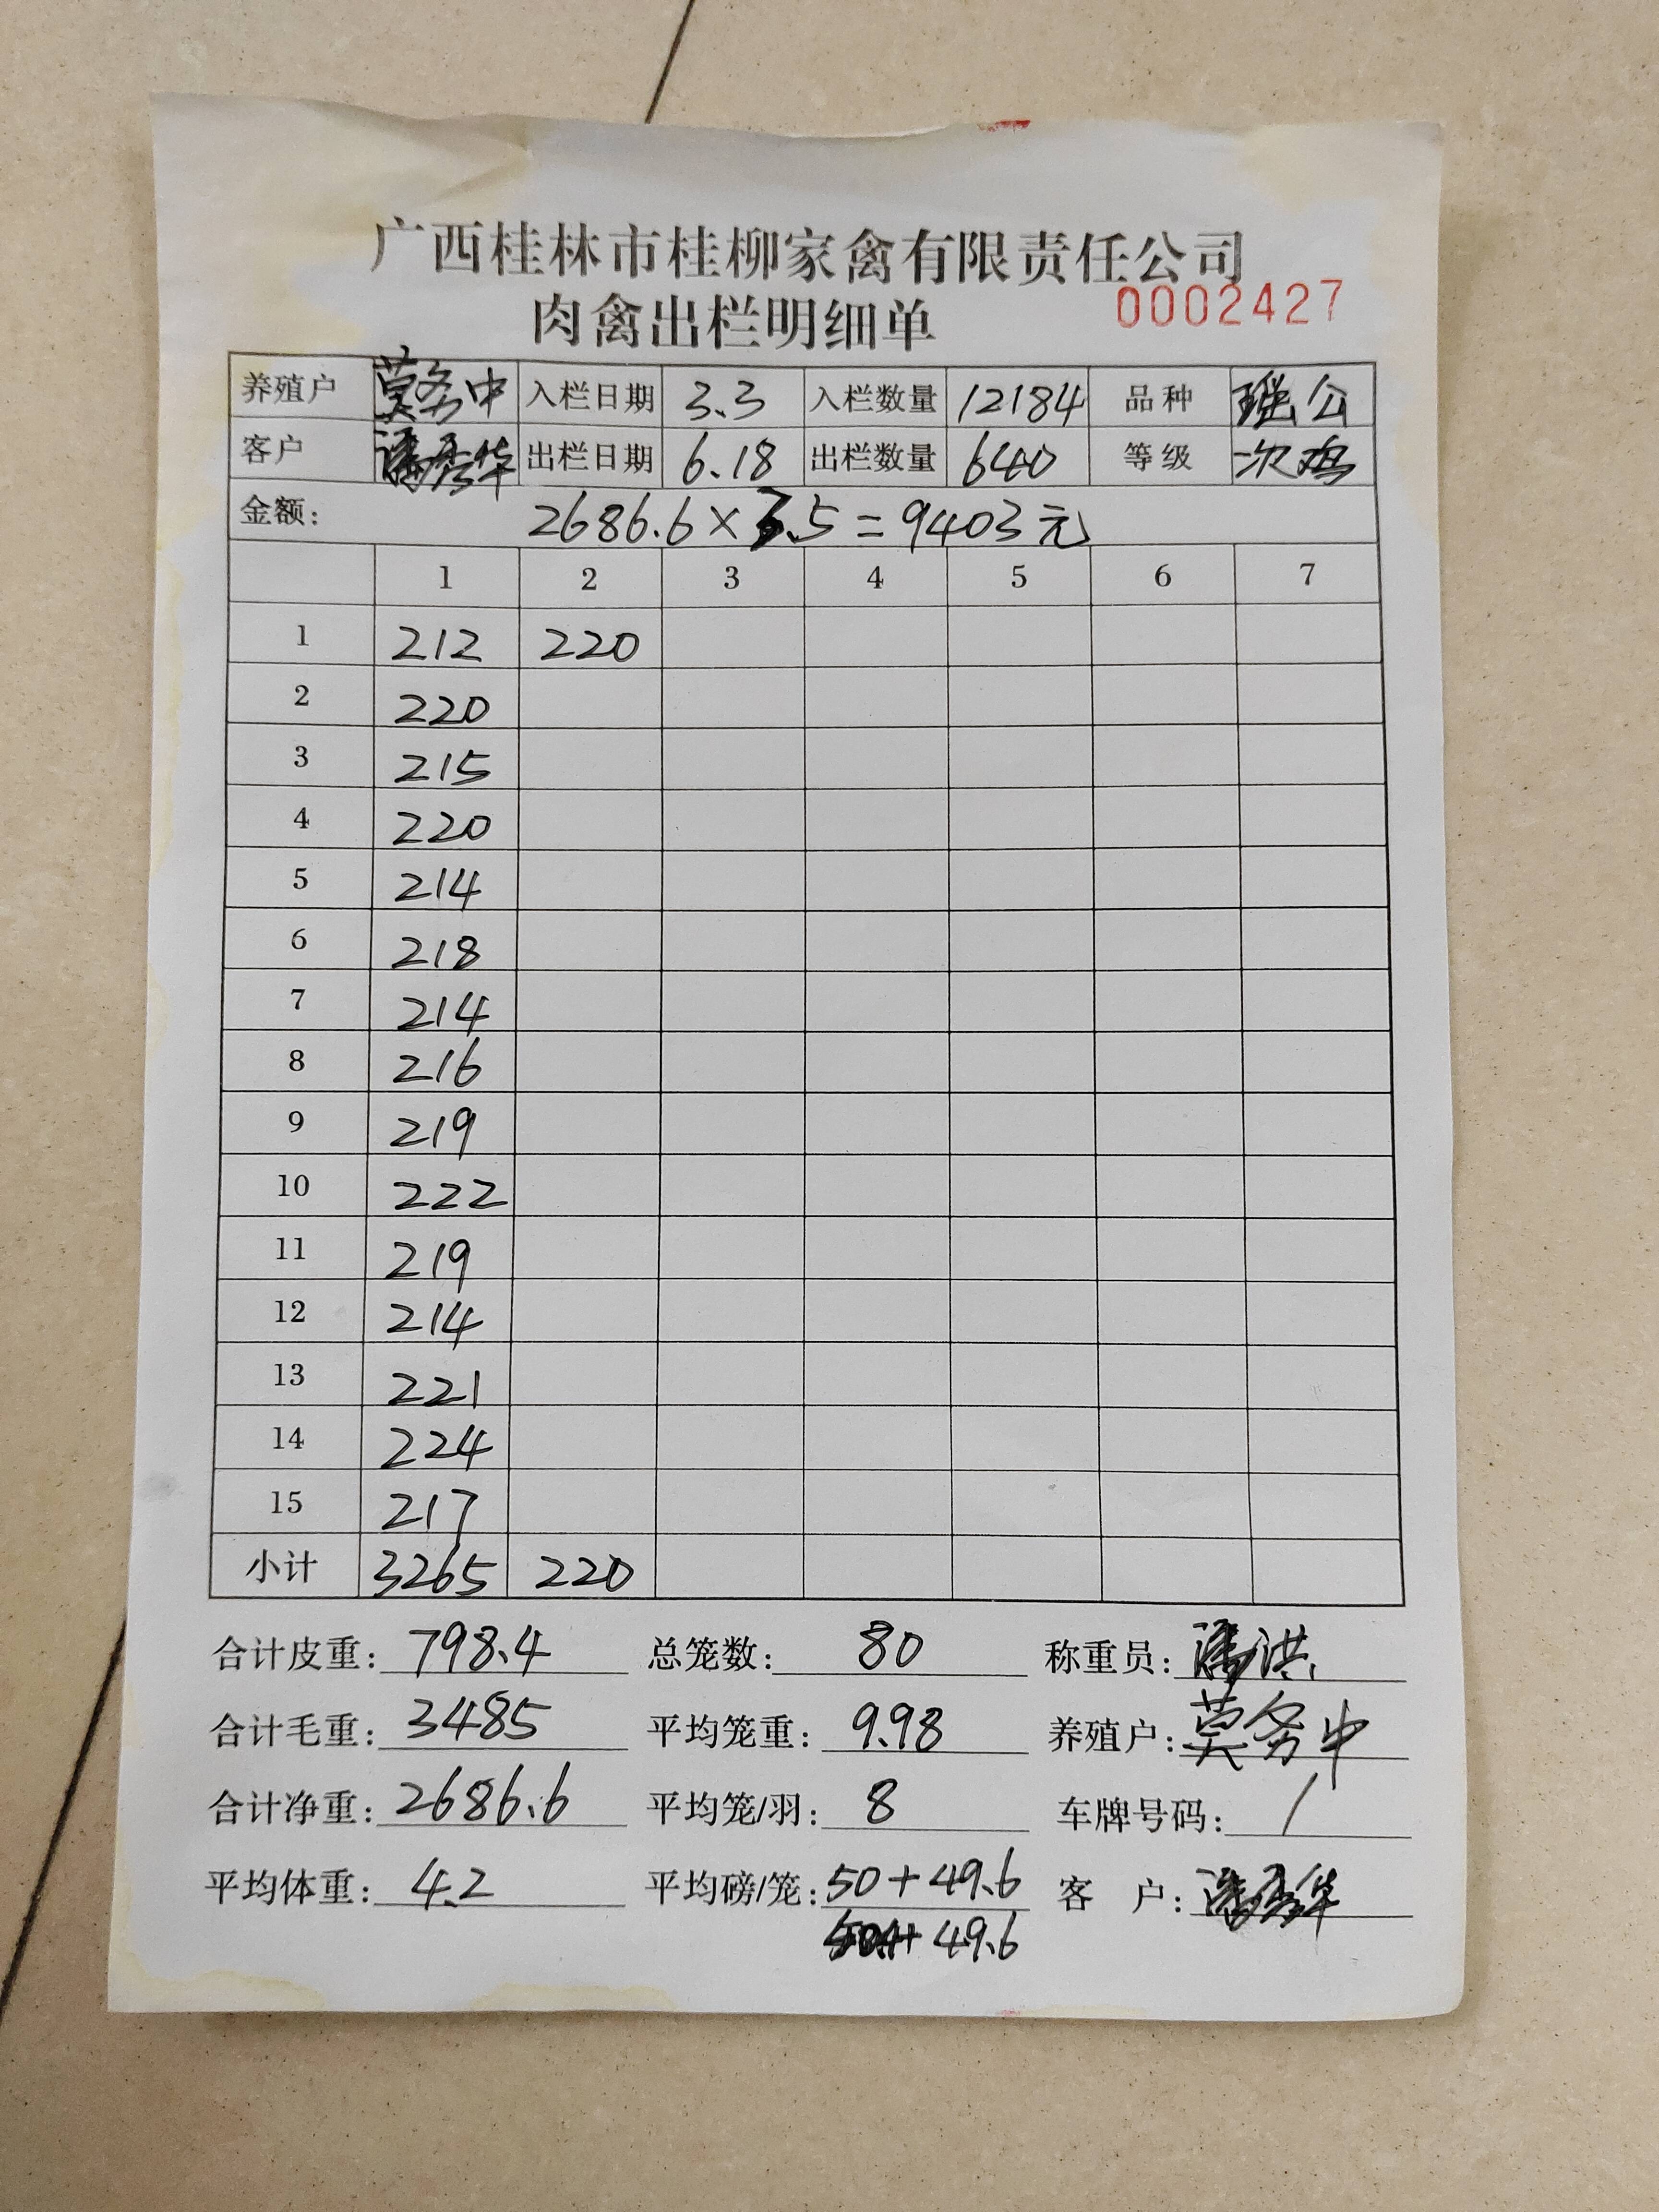 广西桂林市桂柳家禽有限责任公司
肉禽出栏明细单 0002427
养殖户 莫务中 入栏日期 3.3 入栏数量 12184 品种 瑶公
客户 潘秀华 出栏日期 6.18 出栏数量 640 等级 次鸡
金额: 2686.6×3.5=9403元
1 2 3 4 5 6 7
1 212 220
2 220
3 215
4 220
5 214
6 218
7 214
8 216
9 219
10 222
11 219
12 214
13 221
14 224
15 217
小计 3265 220
合计皮重: 798.4 总笼数: 80 称重员: 潘洪
合计毛重: 3485 平均笼重: 9.98 养殖户: 莫务中
合计净重: 2686.6 平均笼/羽: 8 车牌号码: /
平均体重: 4.2 平均磅/笼: 50+49.6 客户: 潘秀华
49.6